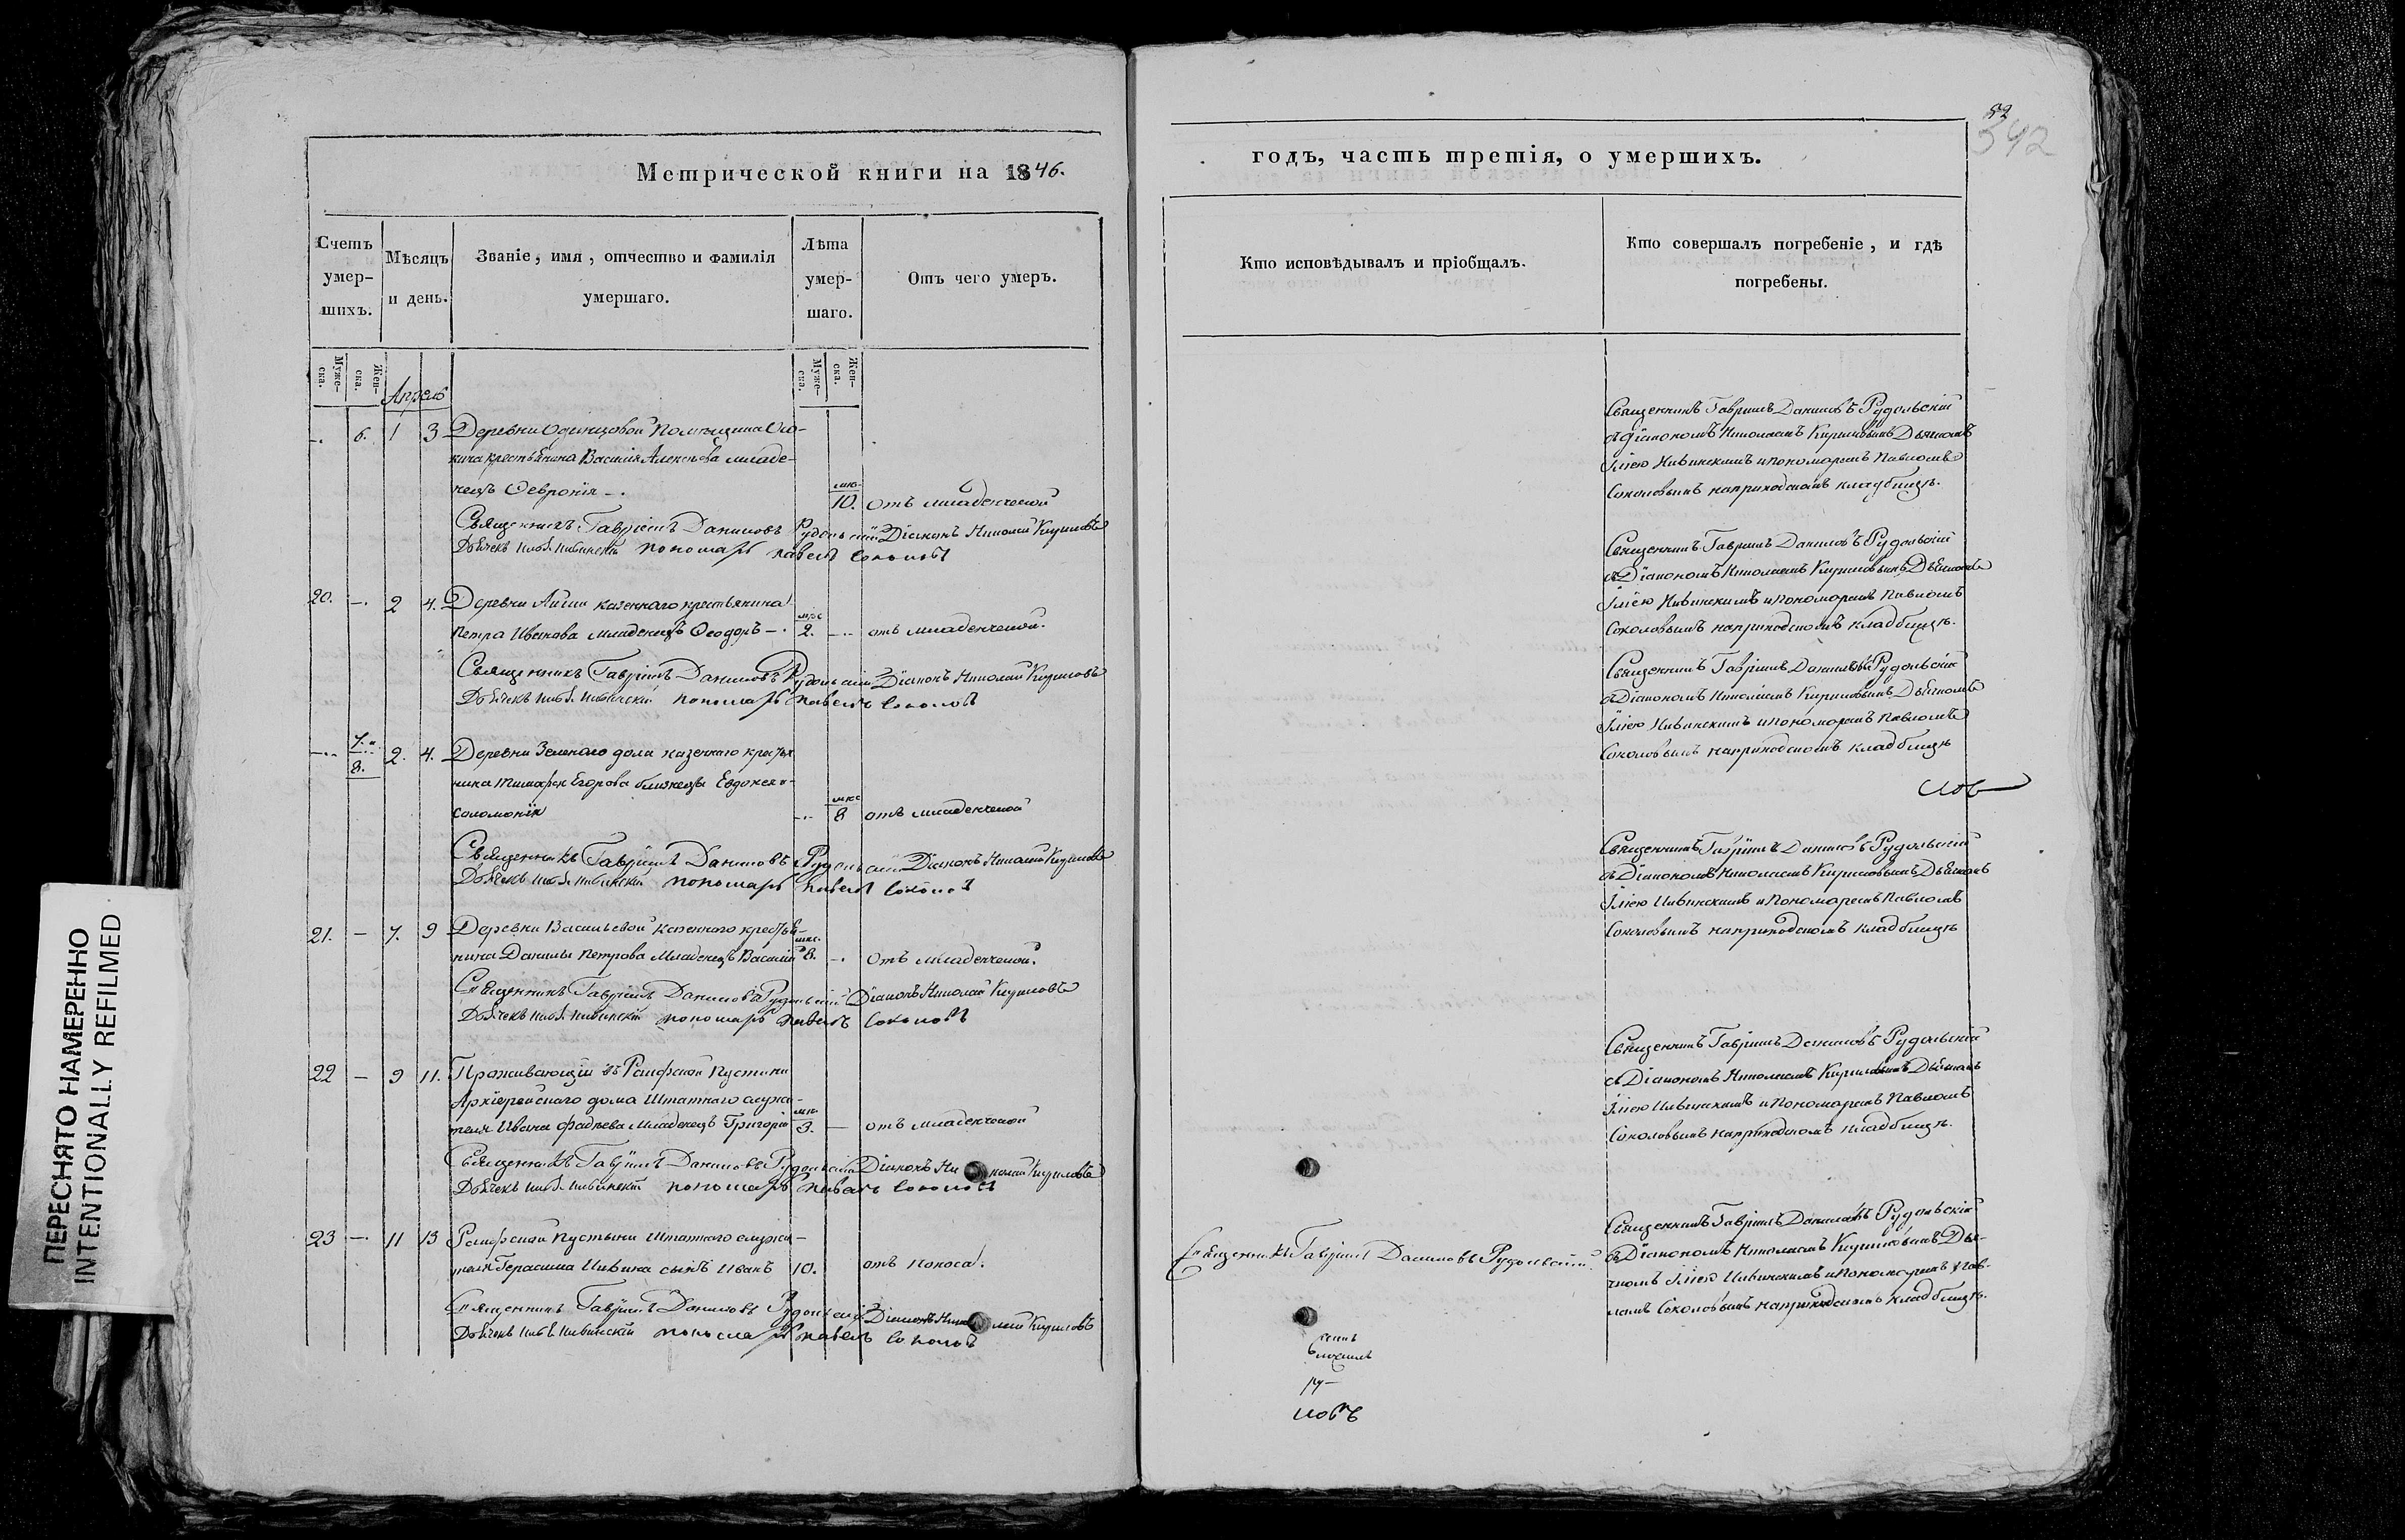 52
342
Метрической книги на 1846.
годъ, часть третія, о умершихъ.
Счетъ умер-шихъ.
Мѣсяцъ и день.
Званіе, имя, отчество и фамилія умершаго.
Лѣта умер-шаго.
Отъ чего умеръ.
Кто исповѣдывалъ и пріобщалъ.
Кто совершалъ погребеніе, и гдѣ погребены.
Муже-ска.
Жен-ска.
Муже-ска.
Жен-ска.
Апрель
-. 6. 1 3 Деревни Одинцовой помещика
крестьянина Василія Алексѣева младе-
нецъ Ѳевронія -. 10. отъ младенческой
Священникъ Гавріилъ Даниловъ Рудольскій Діаконъ Николай Кириловъ
Дьячекъ пономарь Павелъ Соколовъ
Священникъ Гавріилъ Даниловъ Рудольскій
съ Діакономъ Николаемъ Кириловымъ Дьячкомъ
Іліею и пономаремъ Павломъ
Соколовымъ на приходскомъ кладбищѣ.
20. -. 2 4. Деревни казеннаго крестьянина
Петра Иванова младенецъ Ѳеодоръ -. 2. -.. отъ младенческой.
Священникъ Гавріилъ Даниловъ Рудольскій Діаконъ Николай Кириловъ
Дьячекъ пономарь Павелъ Соколовъ
Священникъ Гавріилъ Даниловъ Рудольскій
съ Діакономъ Николаемъ Кириловымъ Дьячкомъ
Іліею и пономаремъ Павломъ
Соколовымъ на приходскомъ кладбищѣ.
-.. 7. 8. 2. 4. Деревни Зеленаго дола казеннаго крестья
нина Тимофея Егорова близнецы Евдокея и
Соломонія -.. 8 отъ младенческой
Священникъ Гавріилъ Даниловъ Рудольскій Діаконъ Николай Кириловъ
Дьячекъ пономарь Павелъ Соколовъ
Священникъ Гавріилъ Даниловъ Рудольскій
съ Діакономъ Николаемъ Кириловымъ Дьячкомъ
Іліею и пономаремъ Павломъ
Соколовымъ на приходскомъ кладбищѣ
лов
21. - 7. 9 Деревни Васильевой казеннаго крестья-
нина Данилы Петрова младенецъ Василій 8. -. отъ младенческой.
Священникъ Гавріилъ Даниловъ Рудольскій Діаконъ Николай Кириловъ
Дьячекъ пономарь Павелъ Соколовъ
Священникъ Гавріилъ Даниловъ Рудольскій
съ Діакономъ Николаемъ Кириловымъ Дьячкомъ
Іліею и пономаремъ Павломъ
Соколовымъ на приходскомъ кладбищѣ
22 - 9 11. Проживающій въ Раифской пустыни
Архіерейскаго дома штатнаго служи-
теля Ивана Фадѣева младенецъ Григорій 3. - отъ младенческой
Священникъ Гавріилъ Даниловъ Рудольскій Діаконъ Николай Кириловъ
Дьячекъ пономарь Павелъ Соколовъ
Священникъ Гавріилъ Даниловъ Рудольскій
съ Діакономъ Николаемъ Кириловымъ Дьячкомъ
Іліею и пономаремъ Павломъ
Соколовымъ на приходскомъ кладбищѣ.
23 -. 11 13 Раифской пустыни штатнаго служи-
теля Герасима сынъ Иванъ 10. отъ поноса.
Священникъ Гавріилъ Даниловъ Рудольскій Діаконъ Николай Кириловъ
Дьячекъ пономарь Павелъ Соколовъ
Священникъ Гавріилъ Даниловъ Рудольскій.
Священникъ Гавріилъ Даниловъ Рудольскій
съ Діакономъ Николаемъ Кириловымъ Дья-
чкомъ Іліею и пономаремъ Пав-
ломъ Соколовымъ на приходскомъ кладбищѣ.
ру-
ловъ
ПЕРЕСНЯТО НАМЕРЕННО
INTENTIONALLY REFILMED